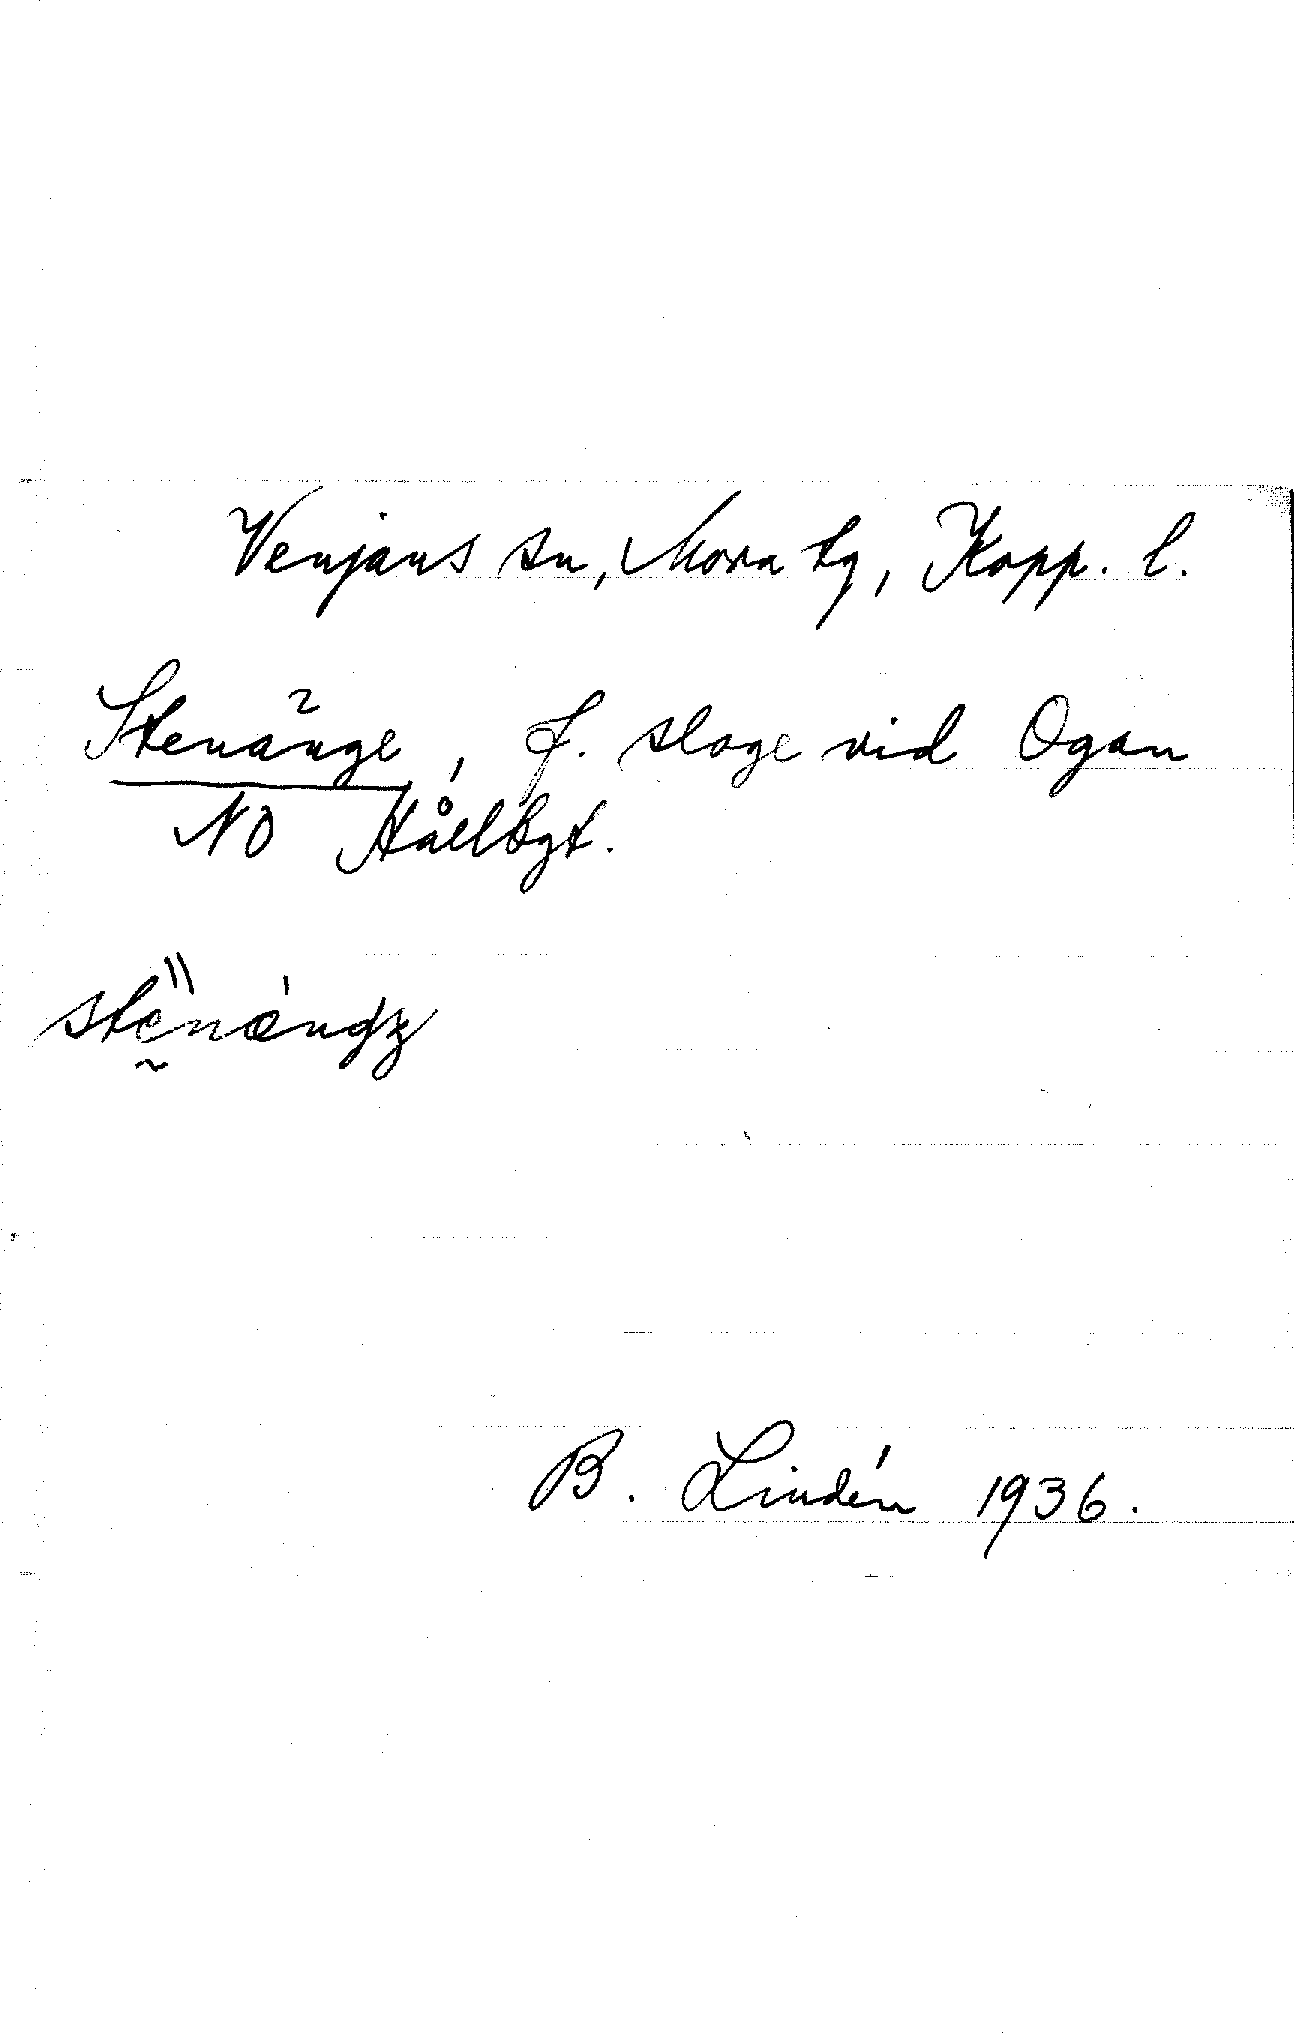 Venjans sn, Mora tg, Kopp. l.
Stenänge, f. sloge vid Ogan
NO Hållbgt.
B. Lindén 1936.